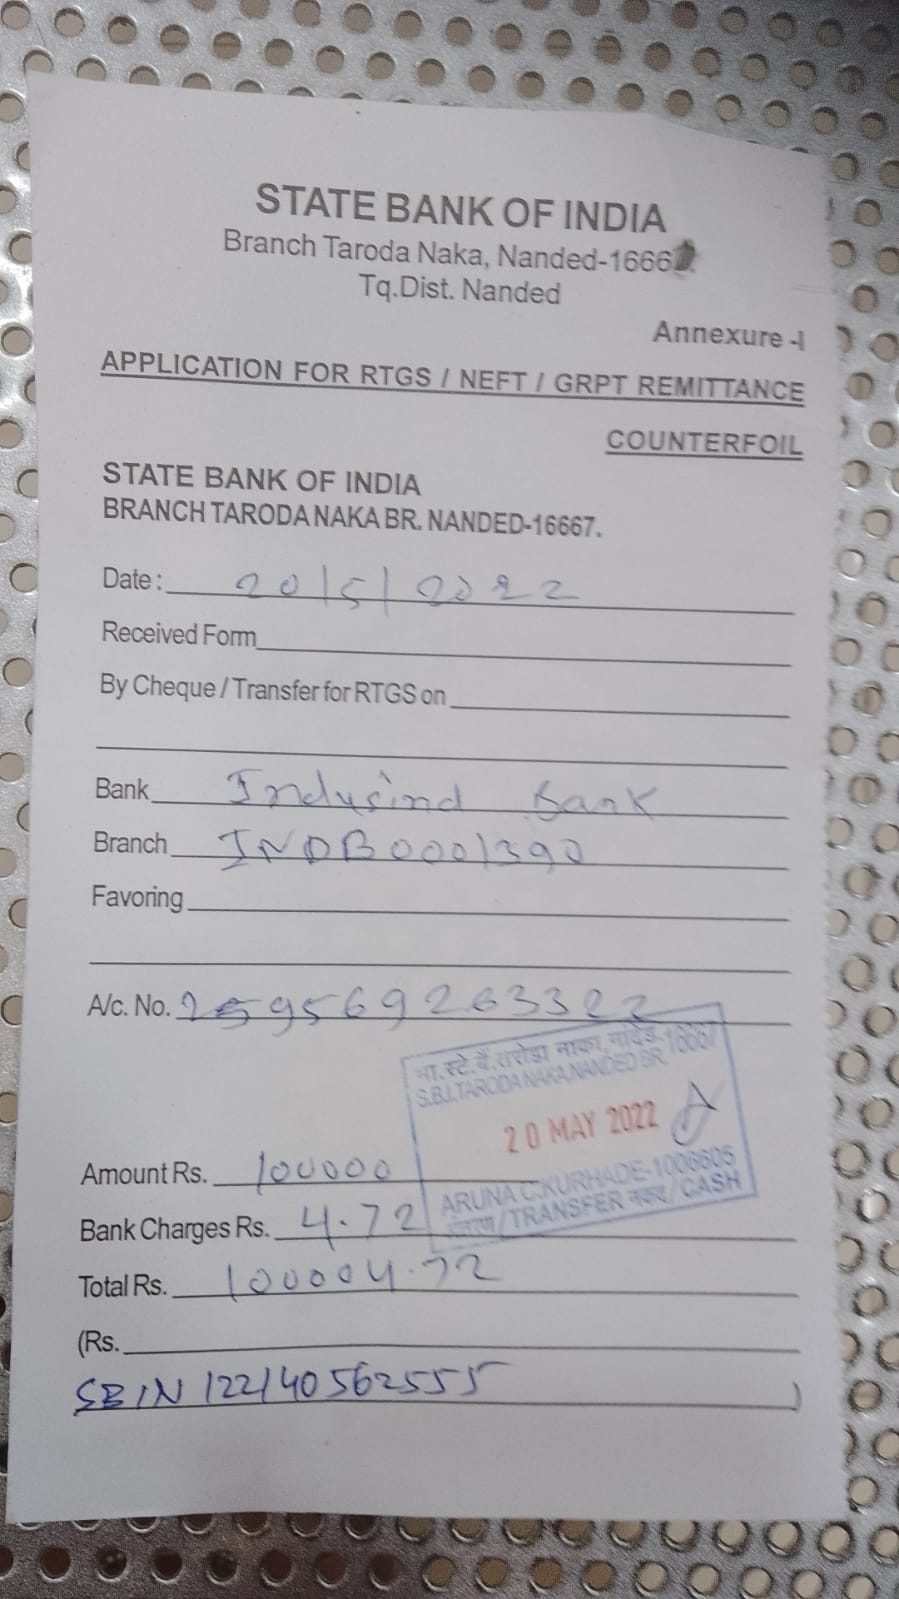 STATE BANK OF INDIA
Branch Taroda Naka, Nanded-16667.
Tq.Dist. Nanded
Annexure -I
APPLICATION FOR RTGS / NEFT / GRPT REMITTANCE
COUNTERFOIL
STATE BANK OF INDIA
BRANCH TARODA NAKA BR. NANDED-16667.
Date : 20/5/2022
Received Form
By Cheque / Transfer for RTGS on
Bank Indusind Bank
Branch INDB0001390
Favoring
A/c. No. 259569263322
भा.स्टे.बैं.तरोडा नाका, नांदेड-16667
S.B.I.TARODA NAKA,NANDED BR.
20 MAY 2022
Amount Rs. 100000
ARUNA C.KURHADE-1006605
/TRANSFER नकद/CASH
Bank Charges Rs. 4.72
Total Rs. 100004.72
(Rs.
SBIN 122140562555 )